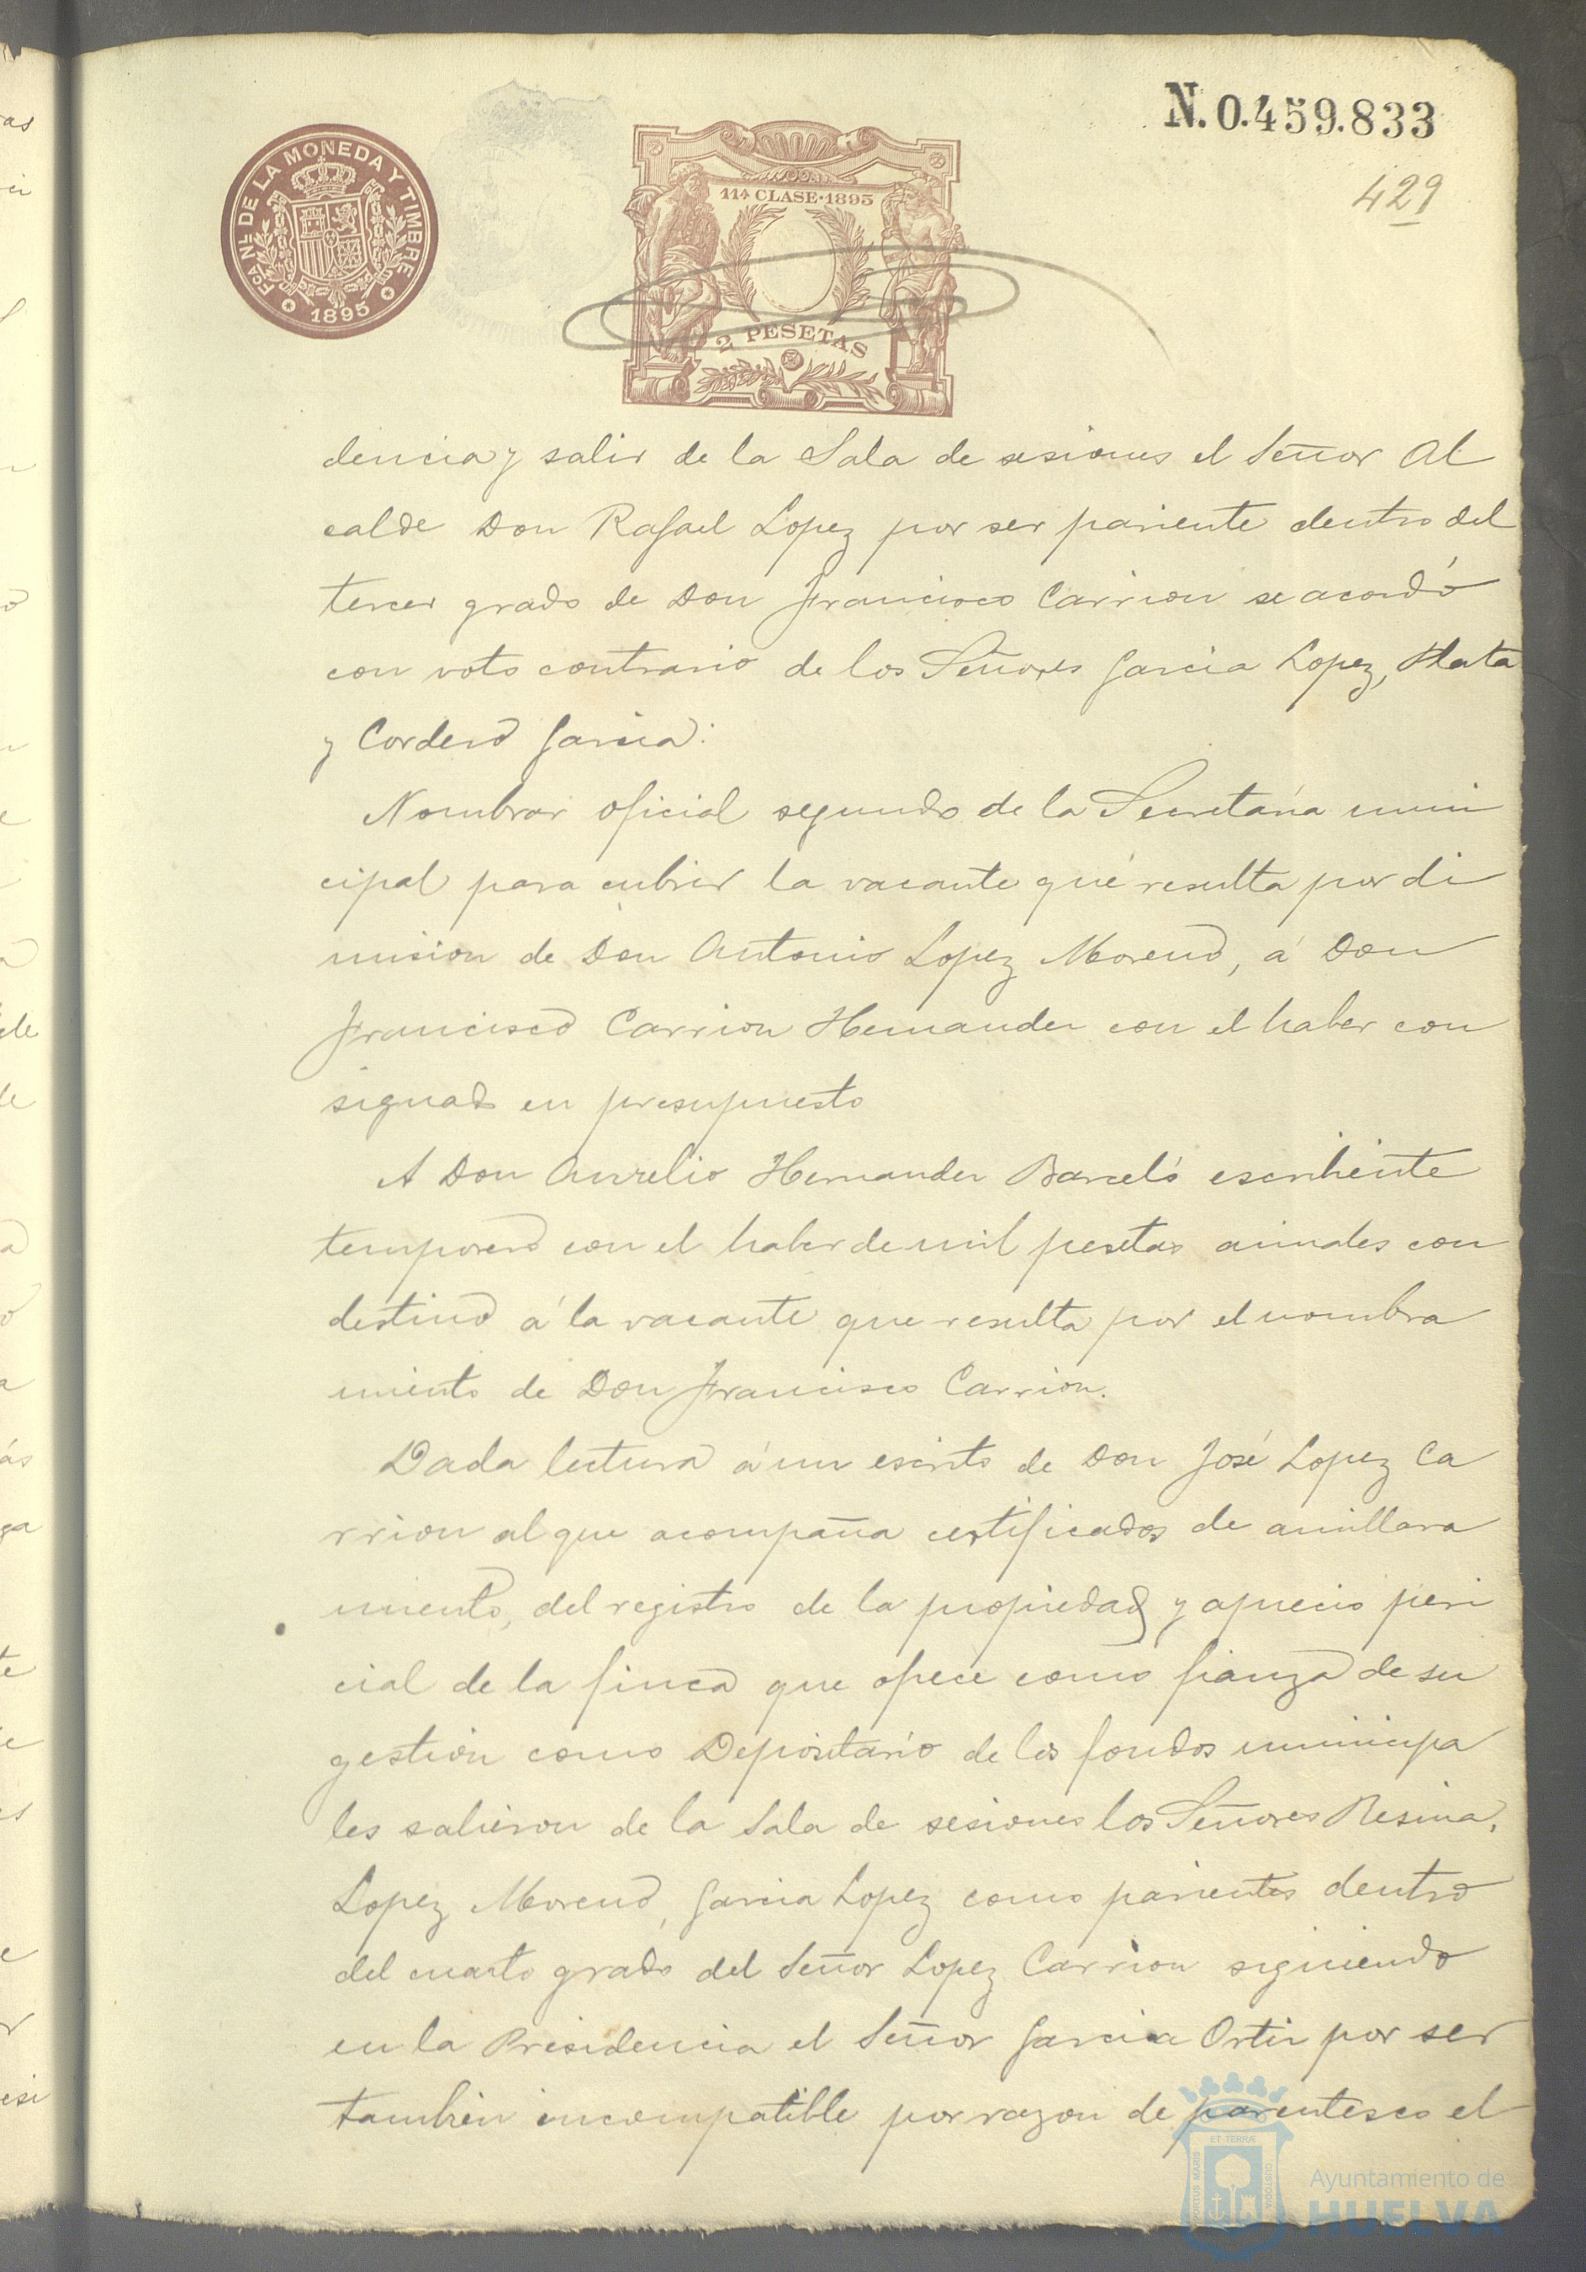 N. 0.459.833
429
FCA NL DE LA MONEDA Y TIMBRE
1895
11ª CLASE·1895
2 PESETAS
dencia y salir de la Sala de sesiones el Señor Al
calde Don Rafael Lopez por ser pariente dentro del
tercer grado de Don Francisco Carrion se acordó
con voto contrario de los Señores Garcia Lopez, Plata
y Cordero Garcia:
Nombrar oficial segundo de la Secretaría muni
cipal para cubrir la vacante que resulta por di
mision de Don Antonio Lopez Moreno, á Don
Francisco Carrion Hernandez con el haber con
signado en presupuesto
A Don Aurelio Hernandez Barceló escribiente
temporero con el haber de mil pesetas anuales con
destino á la vacante que resulta por el nombra
miento de Don Francisco Carrion.
Dada lectura á un escrito de Don José Lopez Ca
rrion al que acompaña certificados de amillara
miento, del registro de la propiedad y aprecio peri
cial de la finca que ofrece como fianza de su
gestión como Depositario de los fondos municipa
les salieron de la Sala de sesiones los Señores Resina,
Lopez Moreno, Garcia Lopez como parientes dentro
del cuarto grado del Señor Lopez Carrion siguiendo
en la Presidencia el Señor Garcia Ortiz por ser
tambien incompatible por razon de parentesco el
PORTUS MARIS
ET TERRÆ
CUSTODIA
Ayuntamiento de
HUELVA